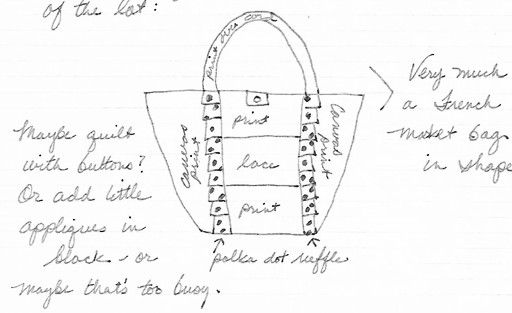 of the lot:
print over cord
Very much
a French
market bag
in shape
print
canvas
print
Canvas
print
lace
print
Maybe quilt
with buttons?
Or add little
appliques in
black - or
maybe that's too busy.
polka dot ruffle